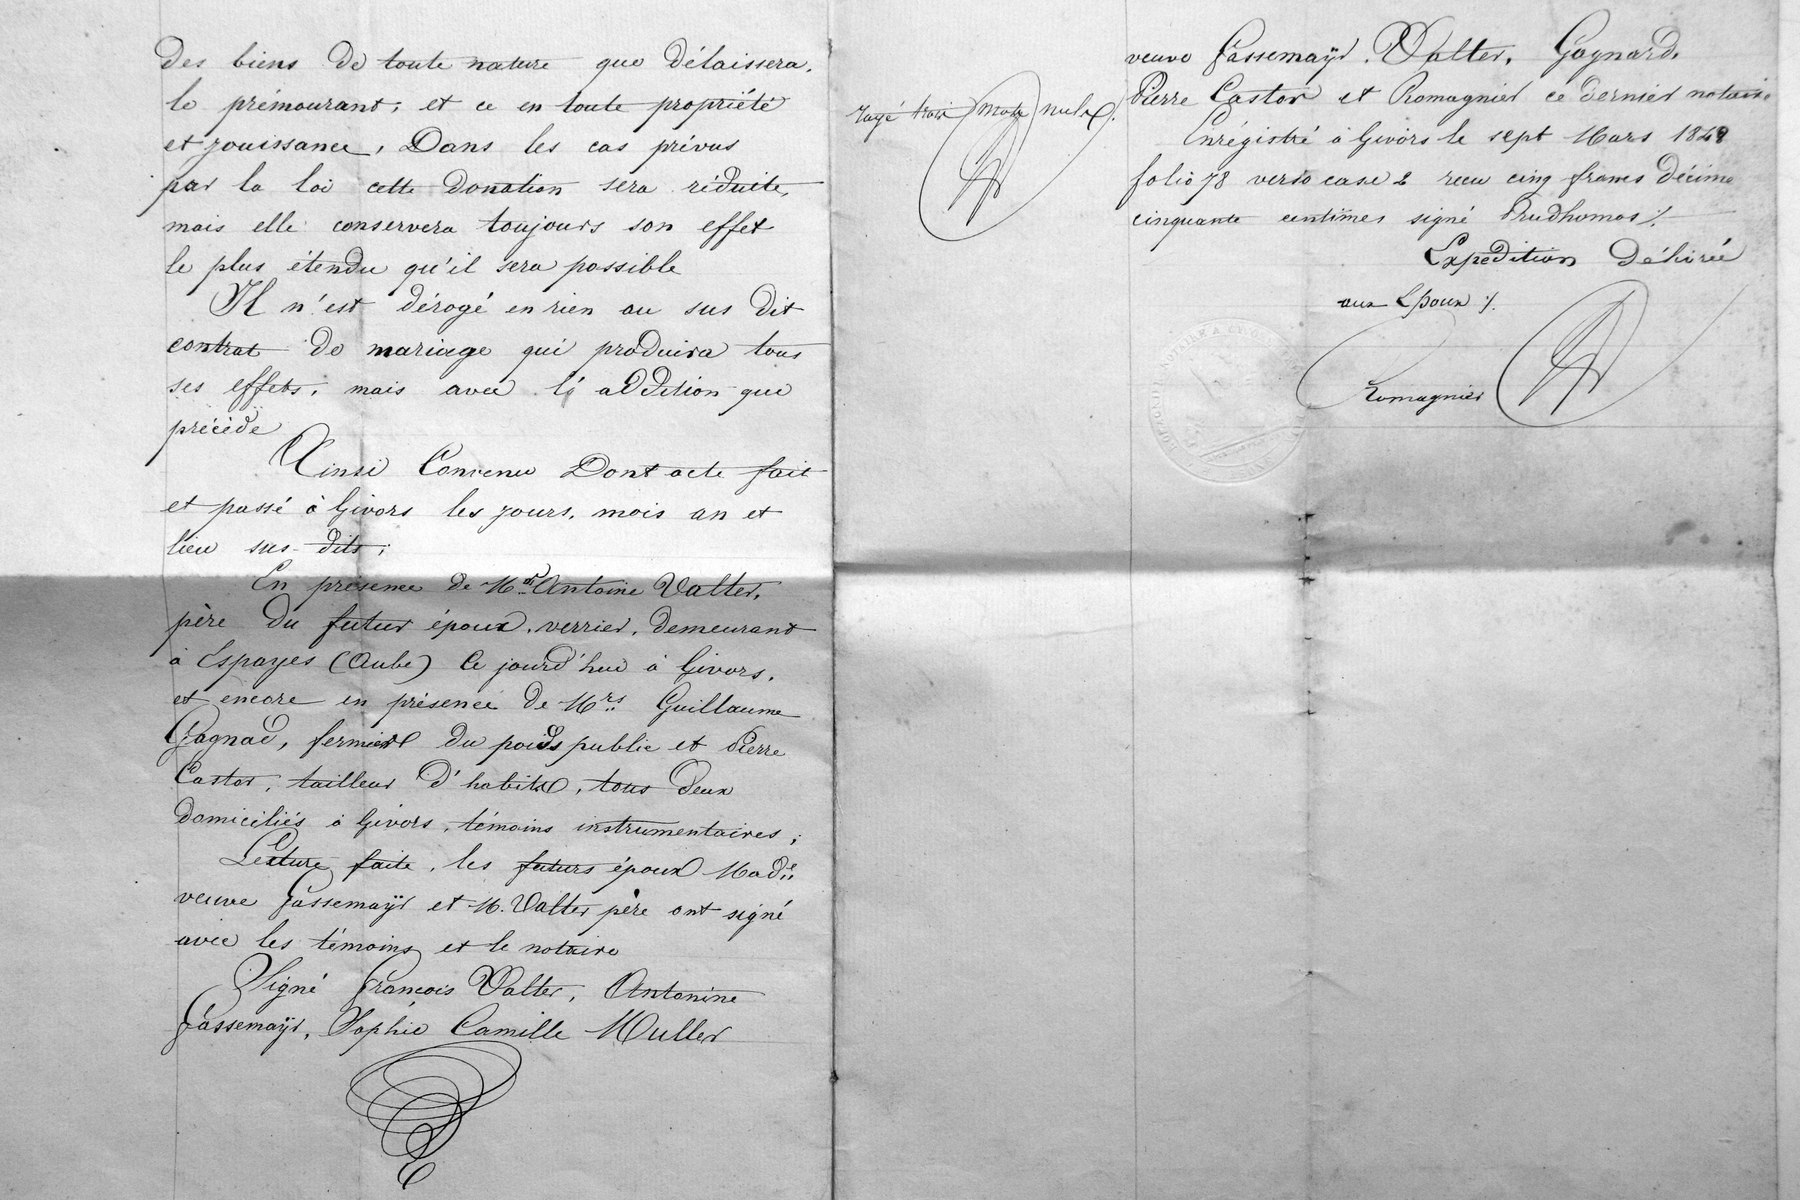 des biens de toute nature que délaissera,
le prémourant, et ce en toute propriété
et jouissance, Dans les cas prévus
par la loi cette Donation sera réduite,
mais elle conservera toujours son effet
le plus étendu qu'il sera possible
Il n'est dérogé en rien au sus dit
contrat de mariage qui produira tous
ses effets, mais avec l'addition que
précède
Ainsi Convenu Dont acte fait
et passé à Givors les jours, mois an et
lieu sus-dits;
En présence de Mr Antoine Valter,
père du futur époux, verrier, demeurant
à Espayes (Aube) Ce jourd'hui à Givors,
et encore en présence de Mrs Guillaume
Gagnad, fermier du poids public et Pierre
Castor, tailleur d'habits, tous deux
domiciliés à Givors, témoins instrumentaires;
Lecture faite, les futurs époux Made
veuve Gassemayd et M. Valter père ont signé
avec les témoins et le notaire
Signé François Valter, Antonine
Gassemayd, Sophie Camille Muller
rayé trois mots nuls.
veuve Gassemayd, Valter, Gagnard,
Pierre Castor et Romagnier ce dernier notaire
Enrégistré à Givors le sept Mars 1848
folio 78 verso case 2 reçu cinq francs décime
cinquante centimes signé Prudhomas ./.
Expédition Délivrée
aux Epoux ./.
Romagnier